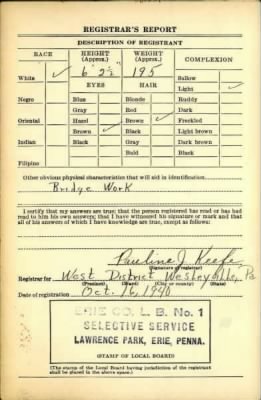 REGISTRAR'S REPORT
DESCRIPTION OF REGISTRANT
RACE HEIGHT (Approx.) WEIGHT (Approx.) COMPLEXION
White ✓ 6' 2½" 195 Sallow
EYES HAIR Light ✓
Negro Blue Blonde Ruddy
Gray Red Dark
Oriental Hazel Brown ✓ Freckled
Brown ✓ Black Light brown
Indian Black Gray Dark brown
Bald Black
Filipino
Other obvious physical characteristics that will aid in identification
Bridge Work
I certify that my answers are true; that the person registered has read or has had read to him his own answers; that I have witnessed his signature or mark and that all of his answers of which I have knowledge are true, except as follows:
Pauline J. Keefe
(Signature of registrar)
Registrar for West District Wesleyville, Pa
(Precinct) (Ward) (City or county) (State)
Date of registration Oct. 16, 1940
ERIE CO. L. B. No. 1
SELECTIVE SERVICE
LAWRENCE PARK, ERIE, PENNA.
(STAMP OF LOCAL BOARD)
(The stamp of the Local Board having jurisdiction of the registrant shall be placed in the above space.)